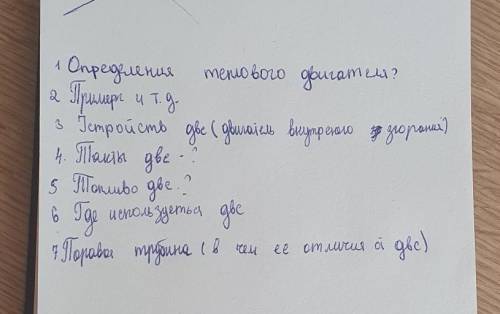 1 Определения теплового двигателя?
2 Примеры и т.д.
3 Устройств двс (двигатель внутреного згорания)
4. Такты двс - ?
5 Топливо двс ?
6 Где используеться двс
7 Паровая трубина (в чем ее отличия от двс)